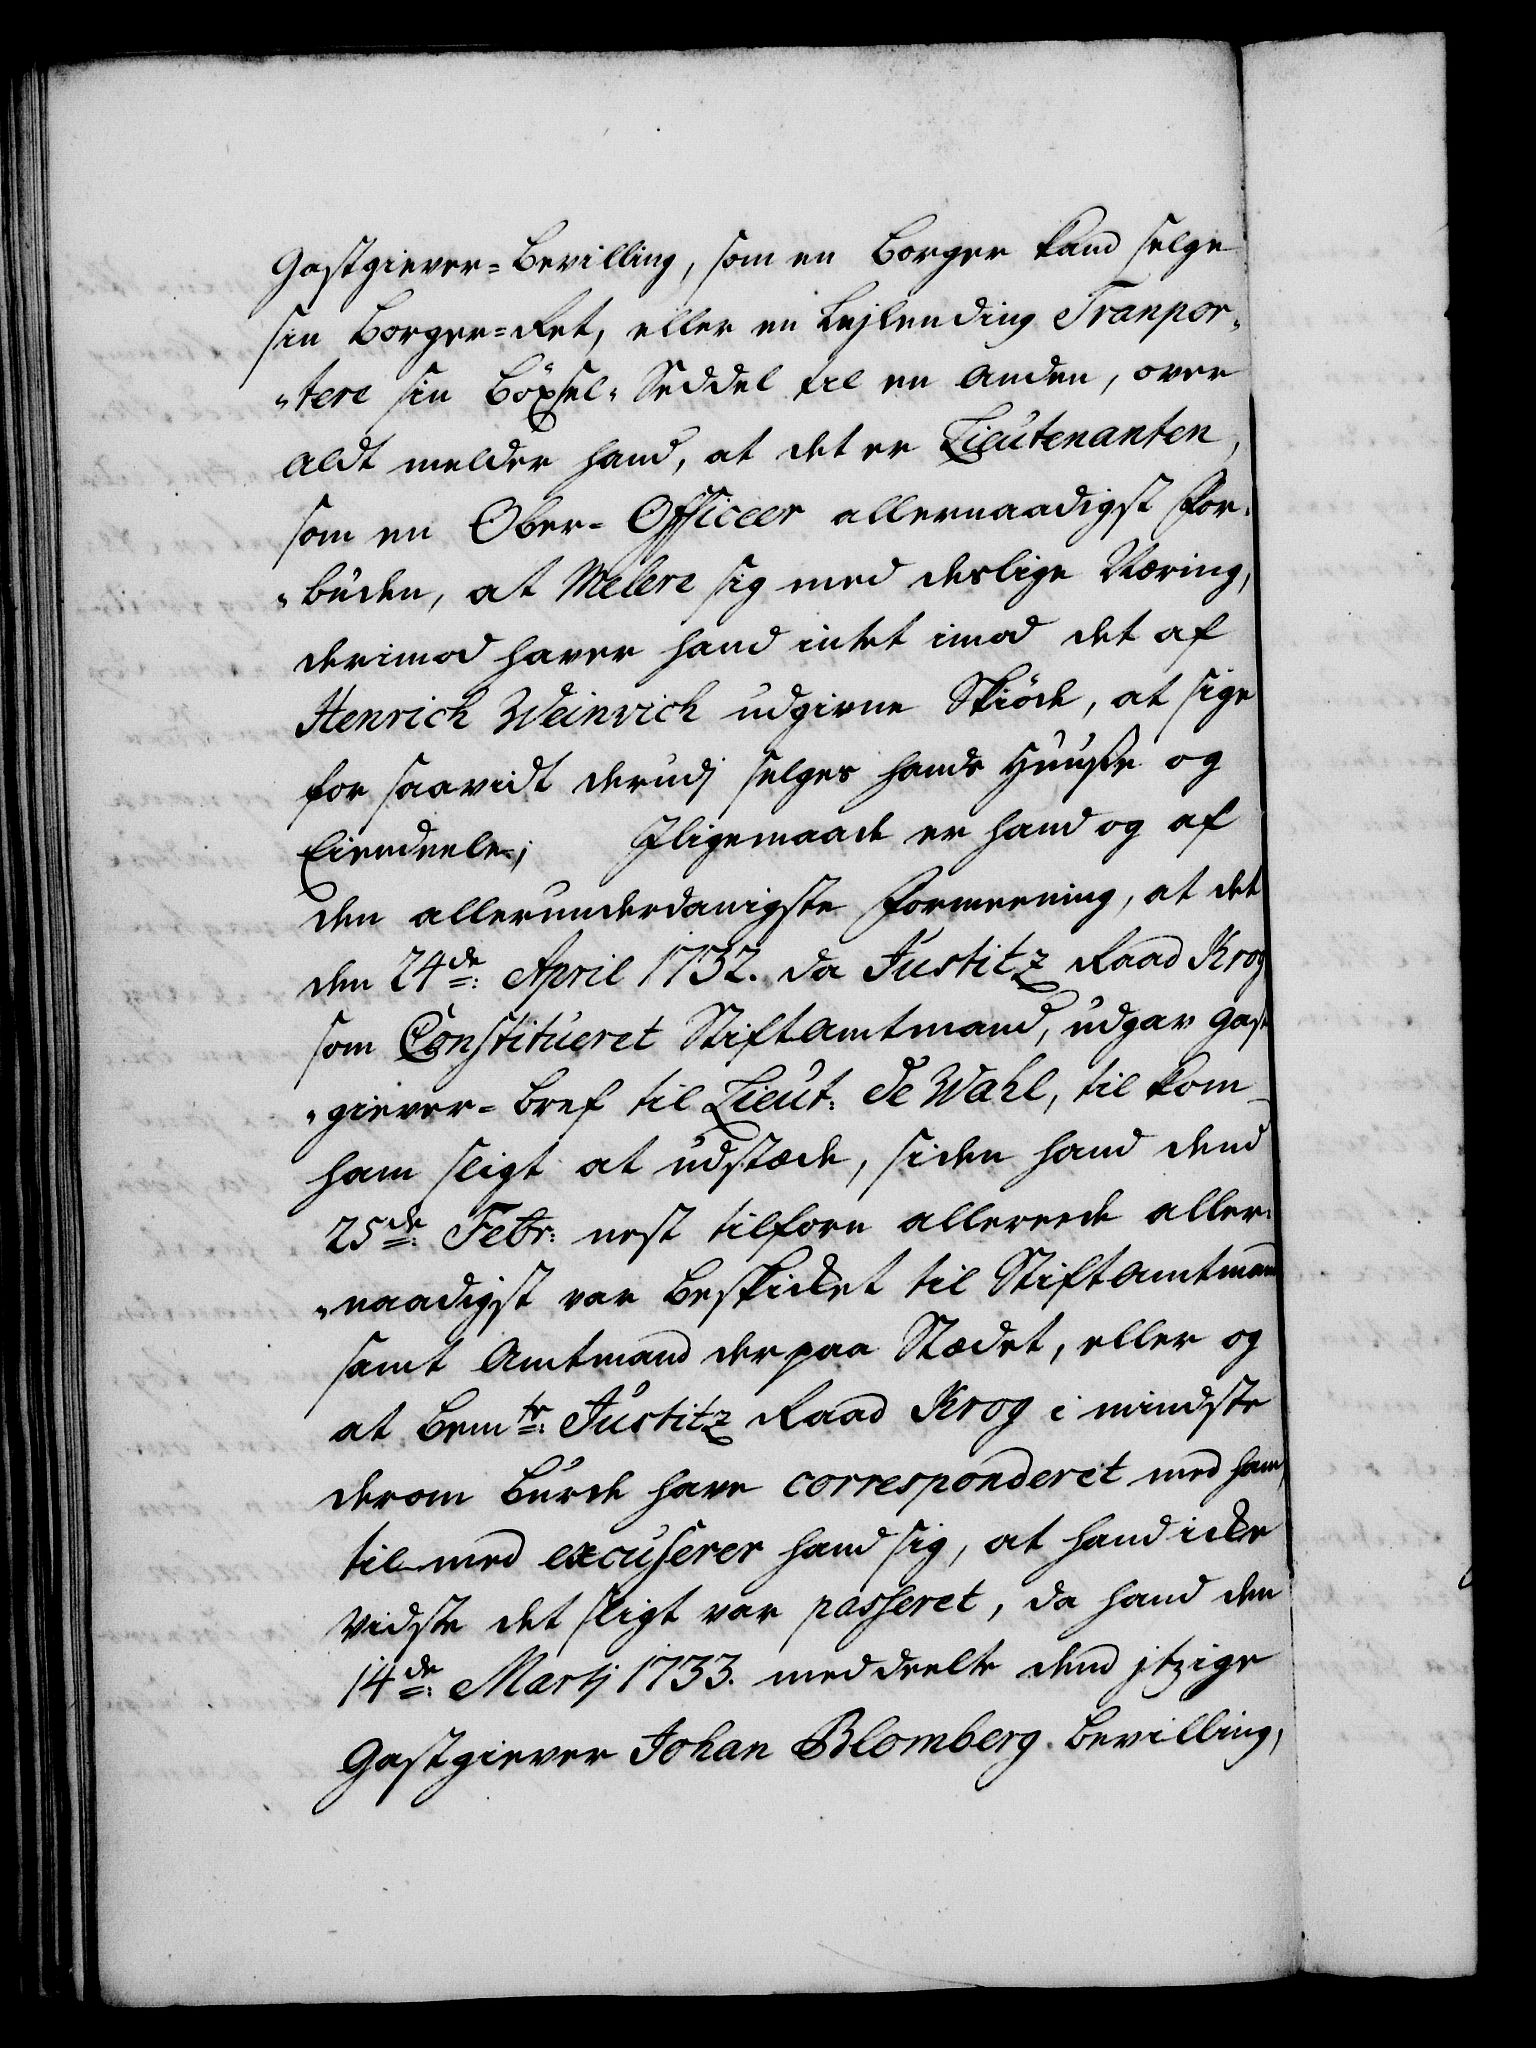 Gastgiever=Bevilling, som en Borger kand selge
sin Borger=Ret, eller en Lejlending Tranpor„
„tere sin Böxsel„Seddel til en anden, over
aldt melder hand, at det er Lieutenanten,
som en Ober-Officeer allernaadigst For„
„buden, at Melere sig med deslige Næring,
derimod haver hand intet imod det af
Henrich Weinrich udgivne Skiöde, at sige
for saavidt derudj selges hands Huuse og
Eiendeele; Jligemaade er hand og af
den allerunderdanigste Formeening, at det
den 24de: April 1732. da Justitz Raad Krog
som Constitueret Stiftamtmand, udgav Gast
„giever=Bref til Lieut: De Wahl, til kom
ham sligt at udstæde, siden hand dend
25de: Febr: nest tilforn allereede aller„
„naadigst var Beskicket til Stiftamtmand
samt Amtmand der paa Stædet, eller og
at Bemte: Justitz Raad Krog i mindste
derom Burde have corresponderet med ham,
til med excuserer hand sig, at hand icke
vidste det sligt var passeret, da hand den
14de: Martj 1733. meddeelte dend jtzige
Gastgiever Johan Blomberg Bevilling,